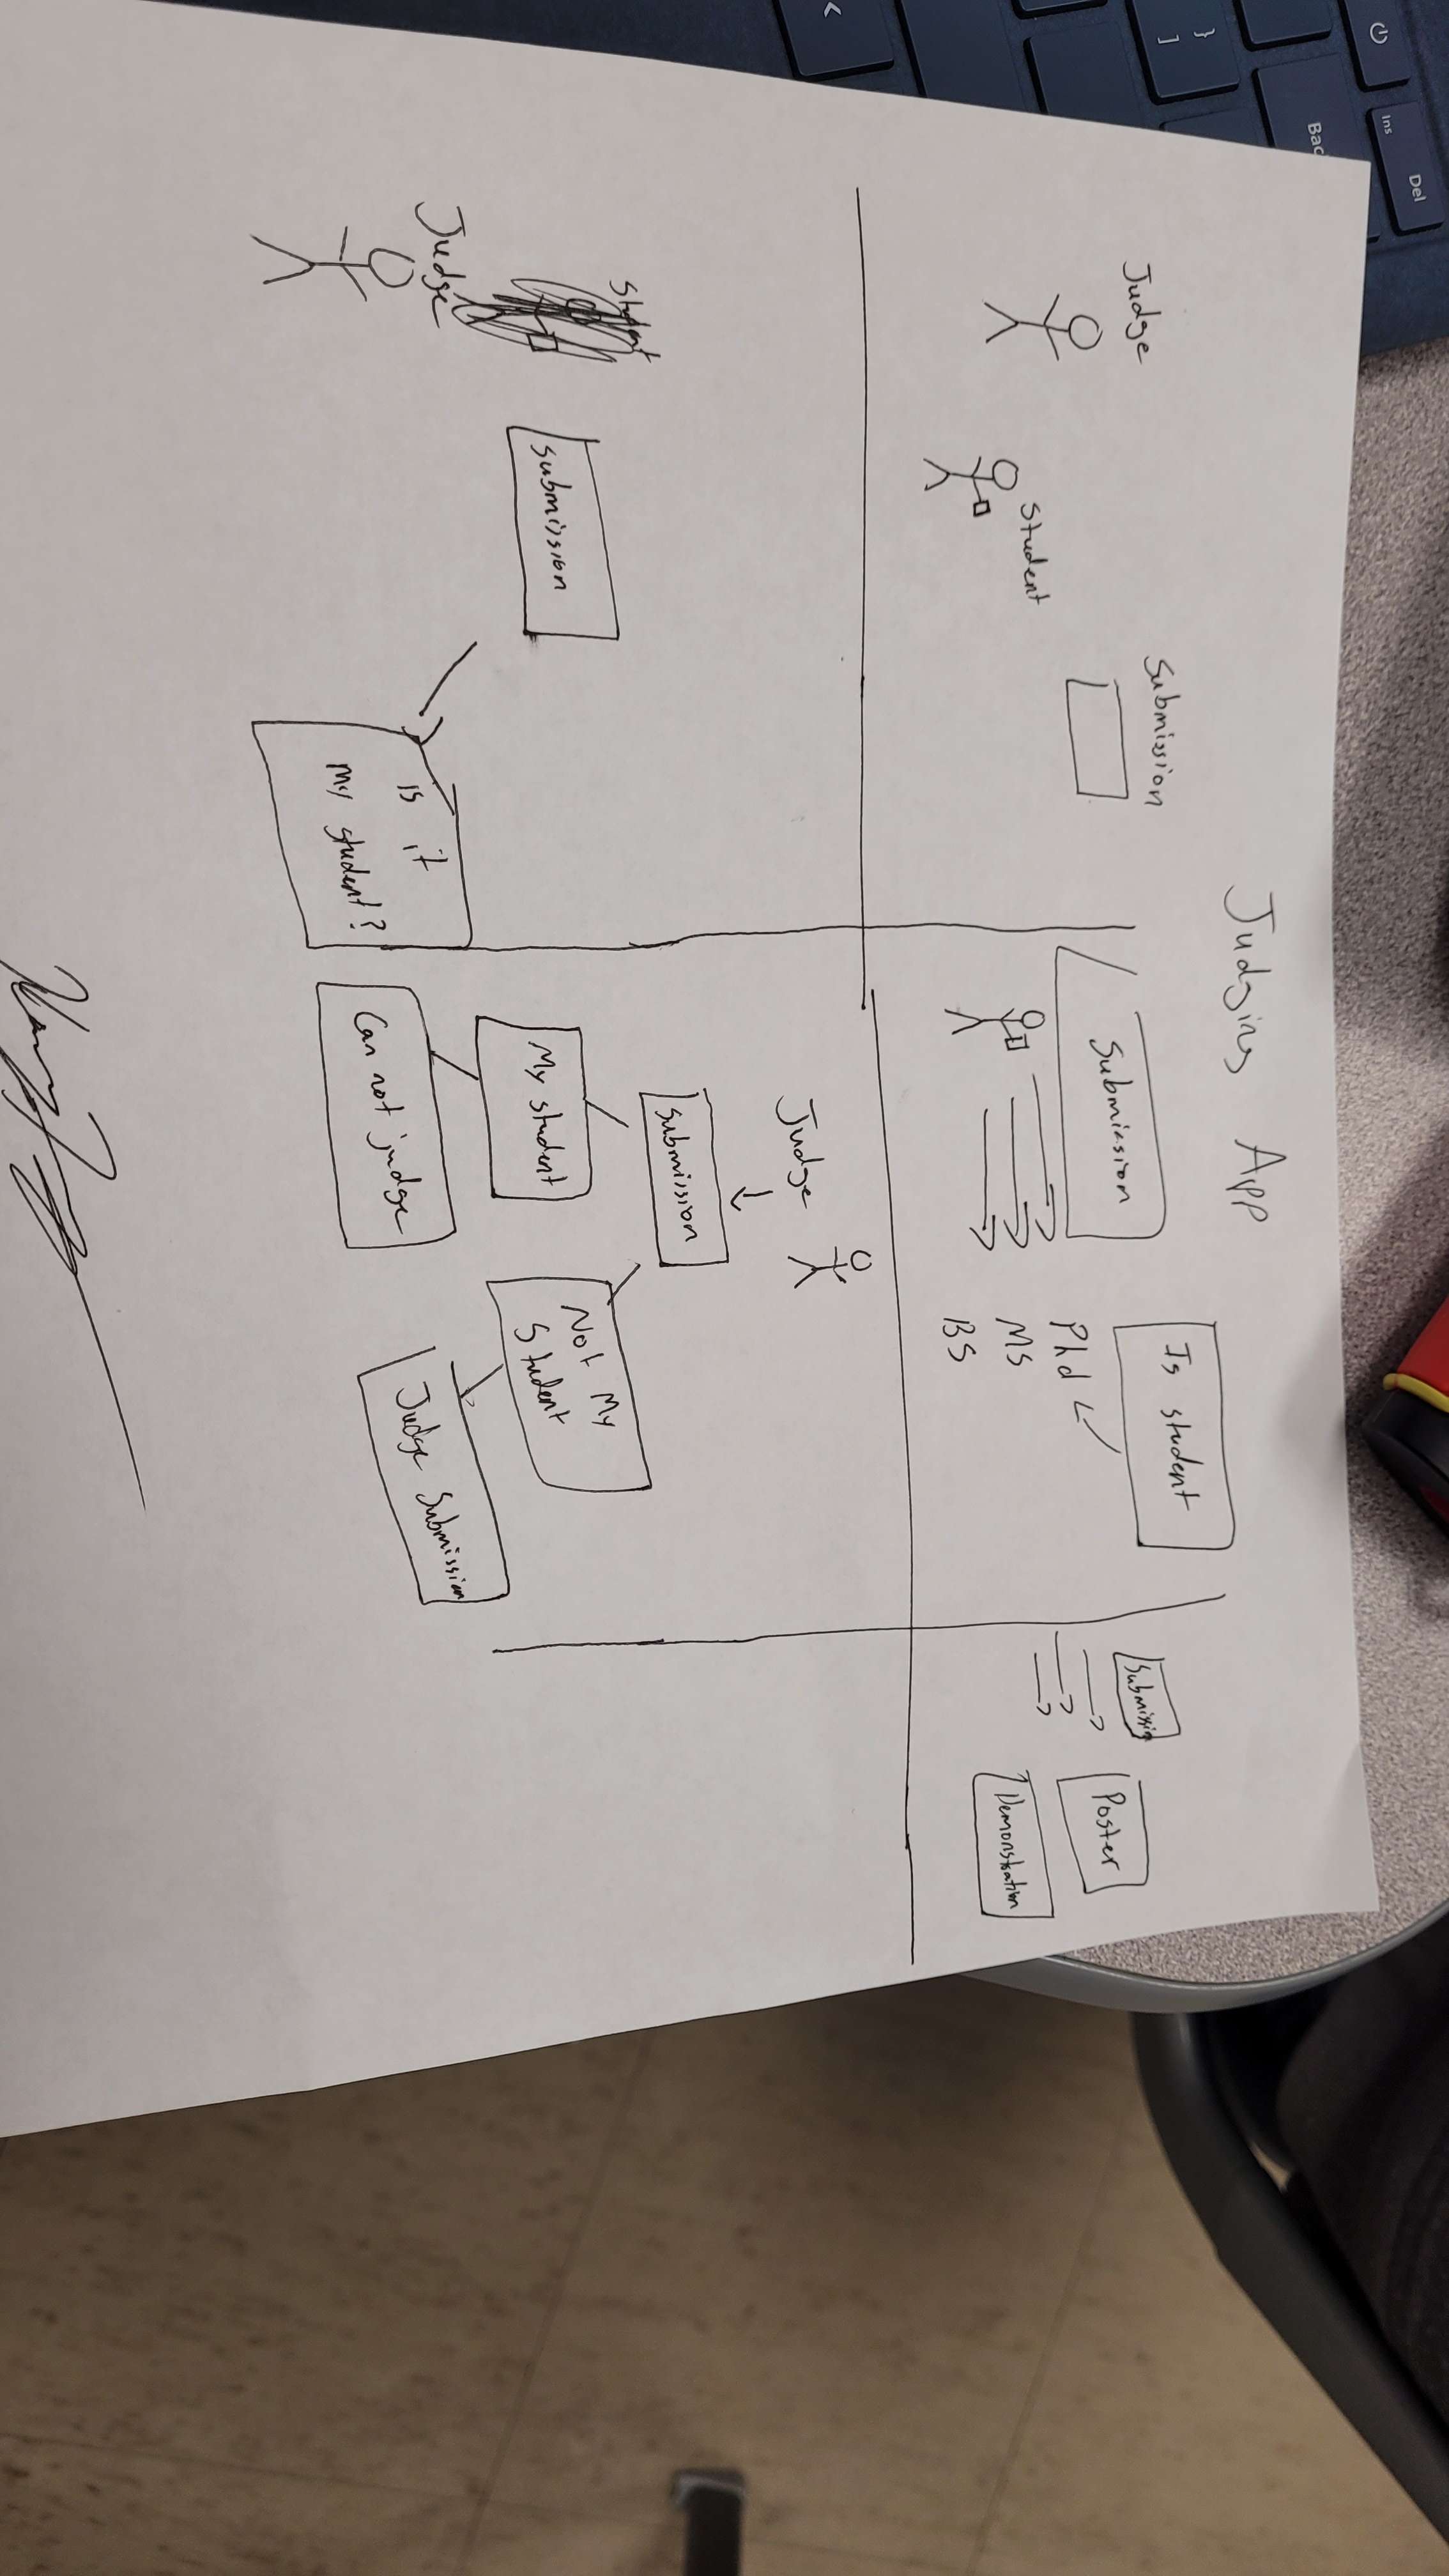 Del
Ins
Bac
}
]
<
Judging App
Judge
Student
Submission
Submission
Is student
Phd
MS
BS
Submission
Poster
Demonstration
Student
Judge
Submission
is it
my student?
Judge
Submission
My student
Can not judge
Not My
Student
Judge Submission